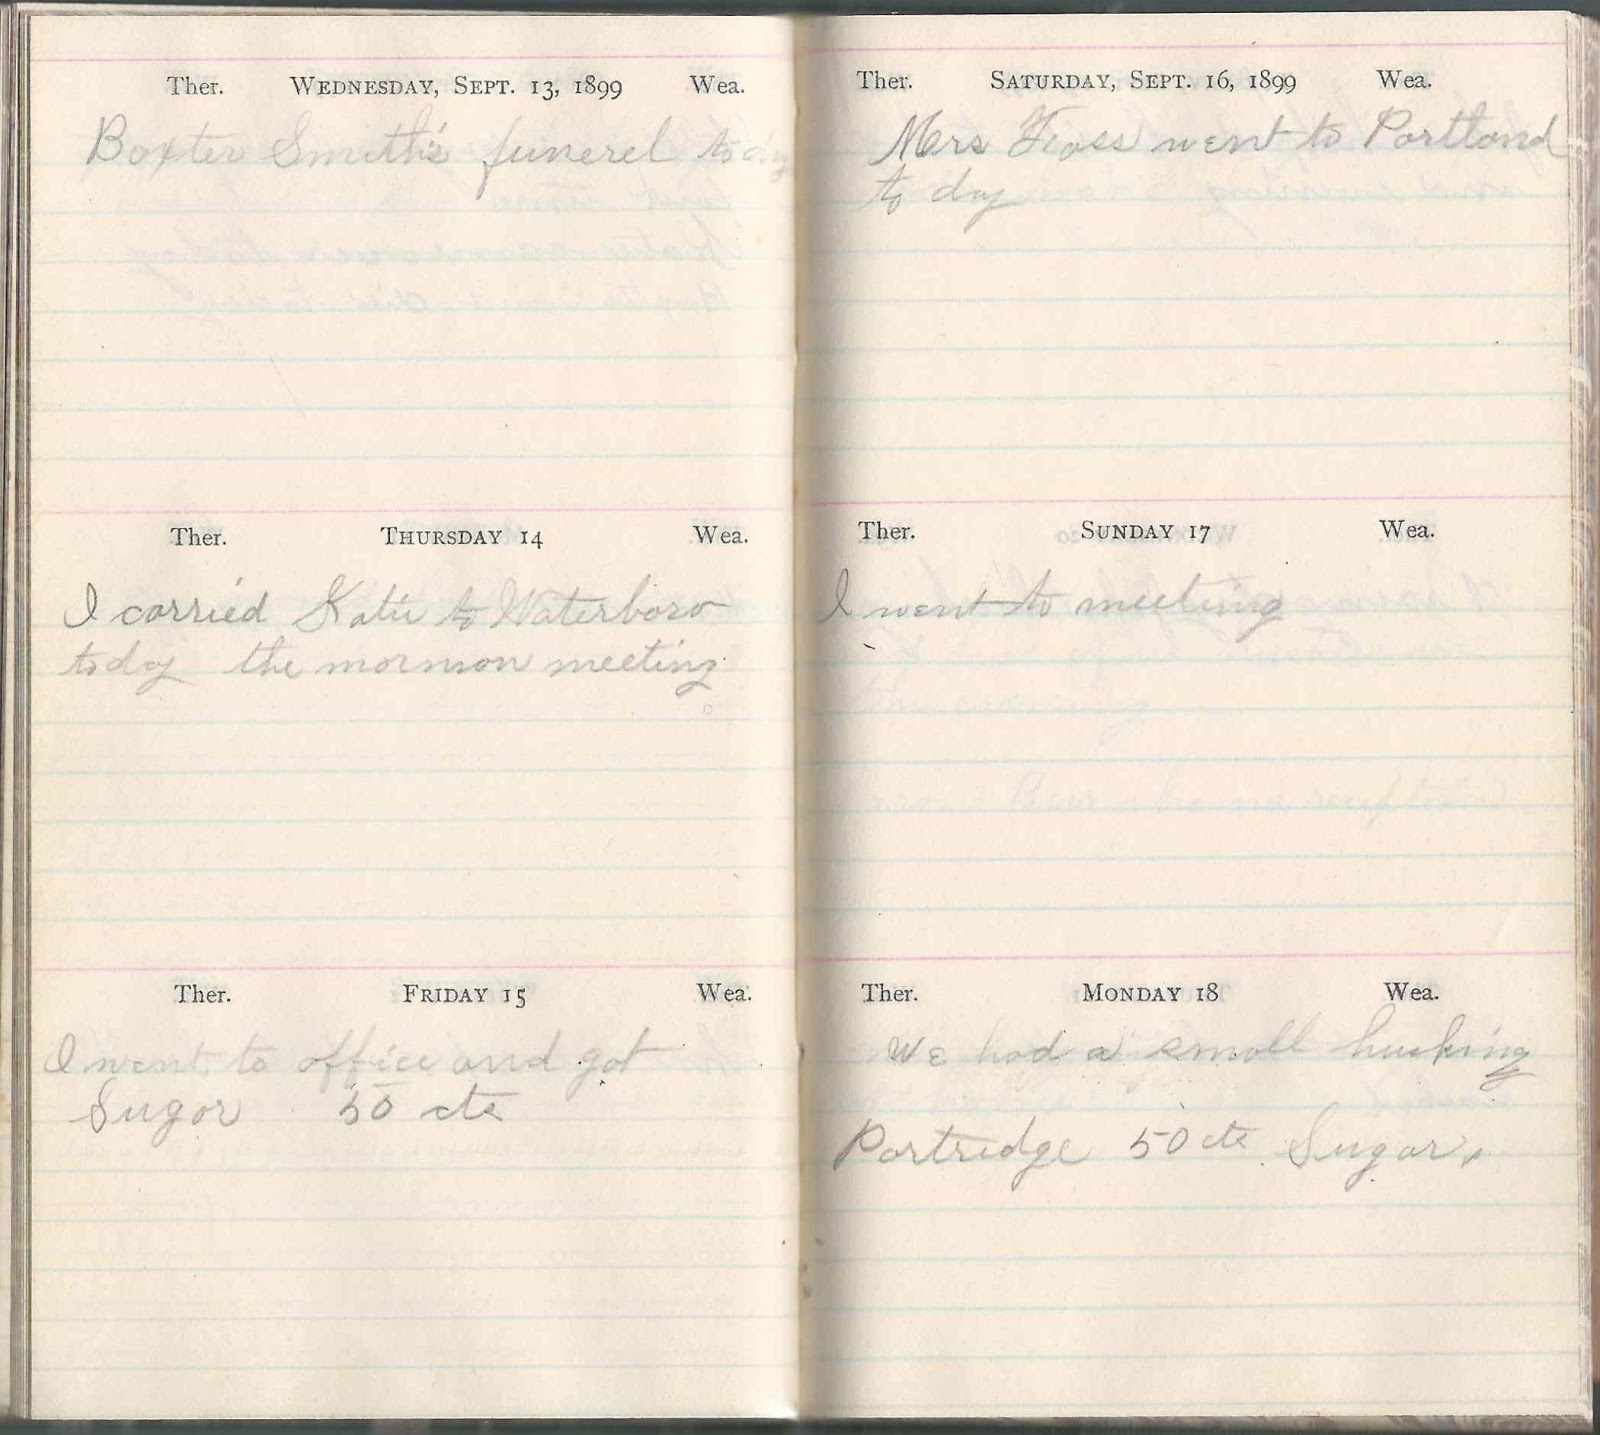 Ther. WEDNESDAY, SEPT. 13, 1899 Wea.
Boxter Smith's funerel to day
Ther. THURSDAY 14 Wea.
I carried Katie to Waterboro
to day the mormon meeting
Ther. FRIDAY 15 Wea.
I went to office and got
Sugar 50 cts
Ther. SATURDAY, SEPT. 16, 1899 Wea.
Mers Foss went to Portland
to day
Ther. SUNDAY 17 Wea.
I went to meeting
Ther. MONDAY 18 Wea.
We had a small husking
Partridge 50 cts Sugar,